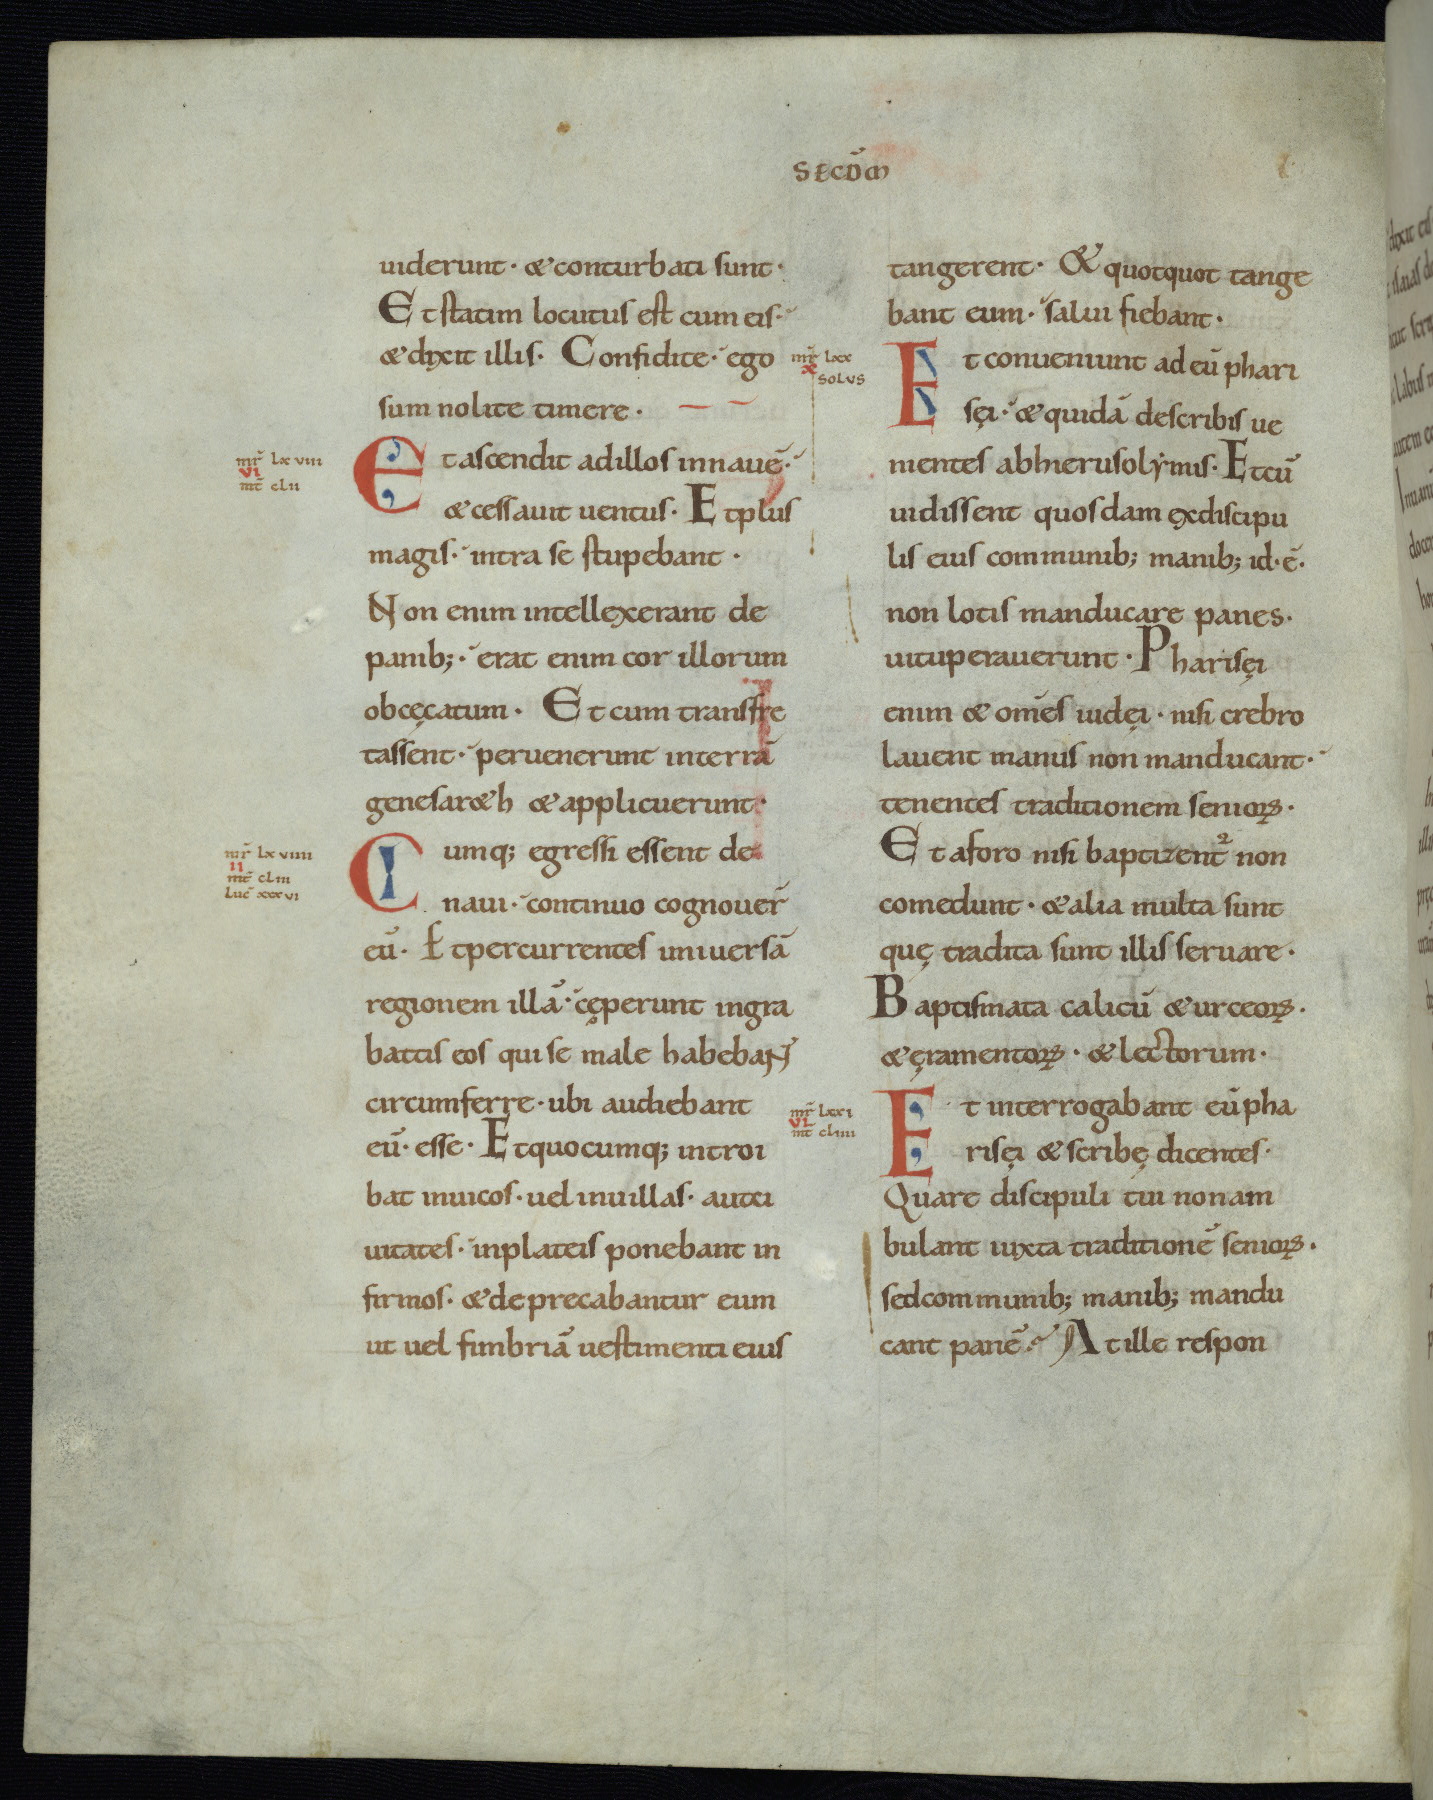 SECDM̄
uiderunt· & conturbati sunt·
Et statim locutus est cum eis·
& dixit illis· Confidite· ego
sum nolite timere·
mr̄ lxviii
vi
mt̄ clii
Et ascendit ad illos in nauē·
& cessauit uentus· Et plus
magis· intra se stupebant·
Non enim intellexerant de
panib;· erat enim cor illorum
obcęcatum· Et cum transfre
tassent· peruenerunt in terrā
genesar&h & applicuerunt·
mr̄ lxviiii
ii
mt̄ cliii
luc̄ xxxvi
Cumq; egressi essent de
naui· continuo cognouer̄
eū· Et percurrentes uniuersā
regionem illā· cęperunt in gra
battis eos qui se male habebant
circumferre· ubi audiebant
eū· esse· Et quocumq; introi
bat in uicos· uel in uillas· aut ci
uitates· in plateis ponebant in
firmos· & deprecabantur eum
ut uel fimbriā uestimenti eius
tangerent· & quotquot tange
bant eum· salui fiebant·
mr̄ lxx
x
SOLVS
Et conueniunt ad eū phari
sęi· & quidā de scribis ue
nientes ab hierusolymis· Et cū
uidissent quosdam ex discipu
lis eius communib; manib; id·ē·
non lotis manducare panes·
uituperauerunt· Pharisęi
enim & om̄es iudęi· nisi crebro
lauent manus non manducant·
tenentes traditionem senioꝝ·
Et a foro nisi baptizent̄ non
comedunt· & alia multa sunt
quę tradita sunt illis seruare·
Baptismata calicū & urceoꝝ·
& ęramentoꝝ· & lectorum·
mr̄ lxxi
vi
mt̄ cliiii
Et interrogabant eū pha
risęi & scribę dicentes·
Quare discipuli tui non am
bulant iuxta traditionē senioꝝ·
sed communib; manib; mandu
cant panē· At ille respon